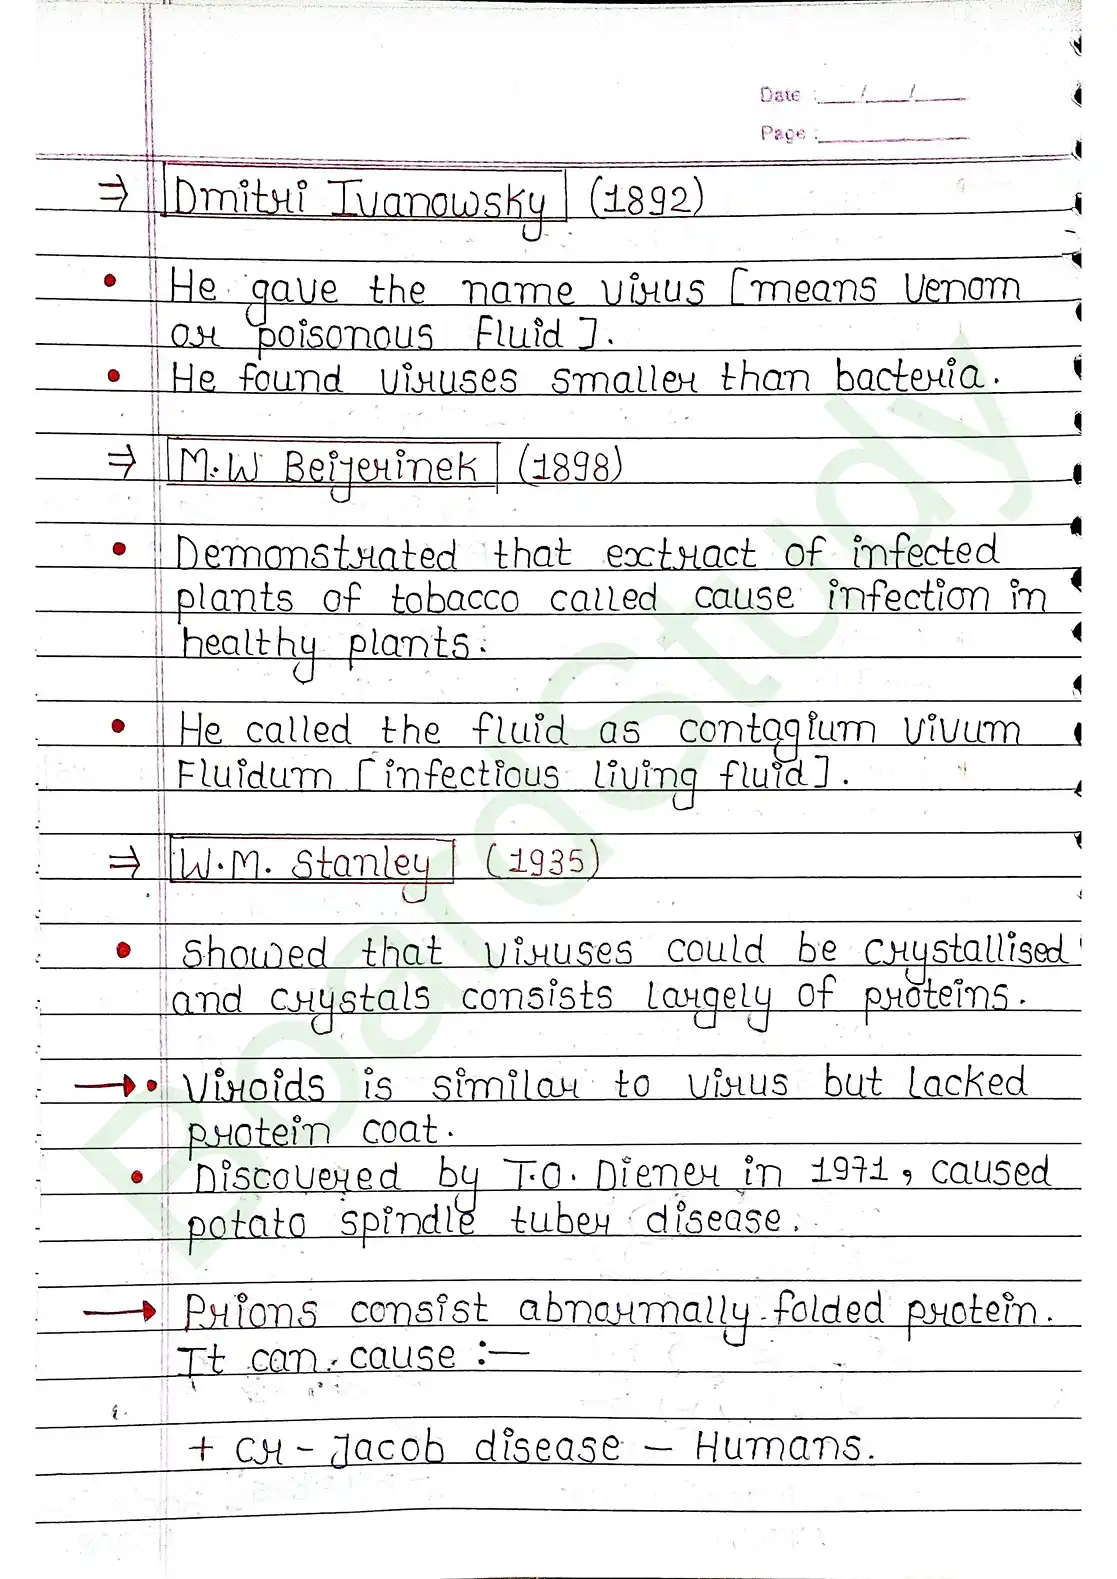 Date : __/__/__
Page : ______
⇒ Dmitri Ivanowsky (1892)
• He gave the name virus [means Venom
or poisonous Fluid].
• He found viruses smaller than bacteria.
⇒ M.W Beijerinek (1898)
• Demonstrated that extract of infected
plants of tobacco called cause infection in
healthy plants.
• He called the fluid as contagium vivum
Fluidum [infectious living fluid].
⇒ W.M. Stanley (1935)
• Showed that viruses could be crystallised
and crystals consists largely of proteins.
→ • Viroids is similar to virus but lacked
protein coat.
• Discovered by T.O. Diener in 1971, caused
potato spindle tuber disease.
→ Prions consist abnormally folded protein.
It can cause :—
+ Cr - Jacob disease - Humans.
BoardStudy